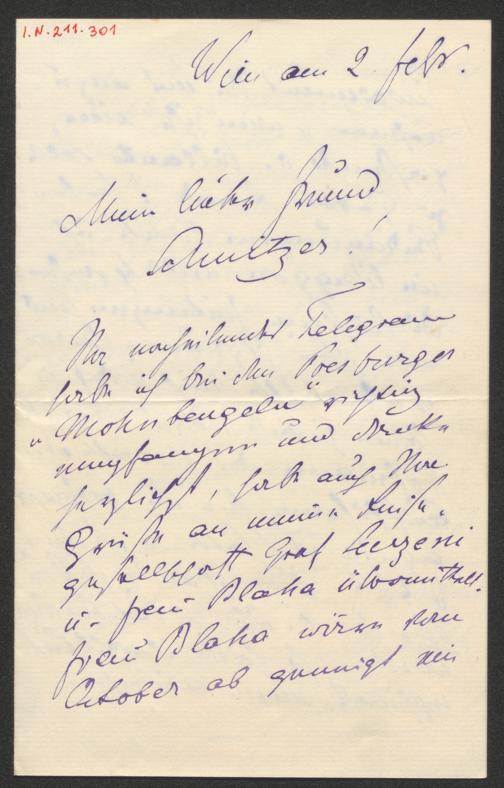 I.N. 211.301
Wien am 2 Febr.
Mein lieber Freund
Schnitzer!
Ihr nacheilendes Telegram
habe ich bei den Pressburger
„Mohnbeugeln" richtig
empfangen und danke
herzlichst, habe auch Ihre
Grüße an meine Reise-
gesellschaft Graf
u. Frau Blaha übermittelt.
Frau Blaha wäre von
October ab geneigt ein